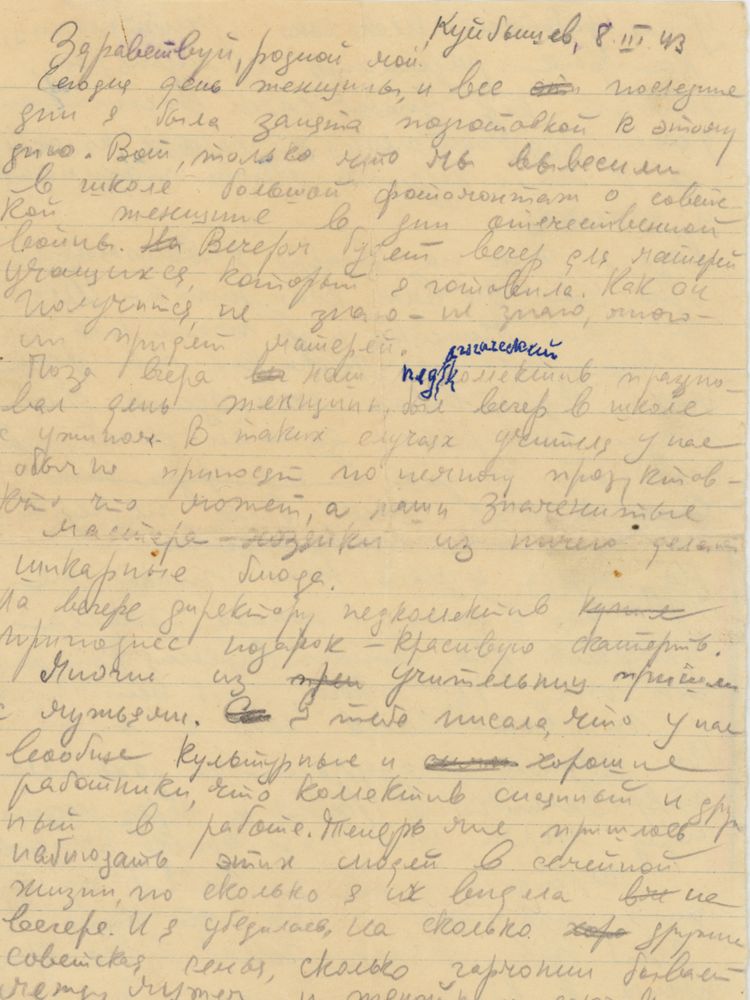 Куйбышев, 8 III 43
Здравствуй, родной мой.
Сегодня день женщины, и все эти последние
дни я была занята подготовкой к этому
дню. Вот, только что мы вывесили
в школе большой фотомонтаж о совет-
ской женщине в дни отечественной
войны. На Вечером будет вечер для матерей
учащихся, который я готовила. Как он
получится, не знаю – не знаю, много-
ли придет матерей.
Поза вчера наш педагогический коллектив праздно-
вал день женщины, был вечер в школе
с ужином. В таких случаях учителя у нас
обычно приносят по немногу продуктов –
кто что может, а наши знаменитые
мастера – хозяйки из ничего делают
шикарные блюда.
На вечере директору педколлектив купил
приподнес подарок – красивую скатерть.
Многие из при учительниц пришли
с мужьями. Я тебе писала, что у нас
вообще культурные и хорошие
работники, что коллектив спаянный и друж
ный в работе. Теперь мне пришлось
наблюдать этих людей в семейной
жизни, по сколько я их видела на
вечере. И я убедилась, на сколько хоро дружна
советская семья, сколько гармонии бывает
между мужем и женой